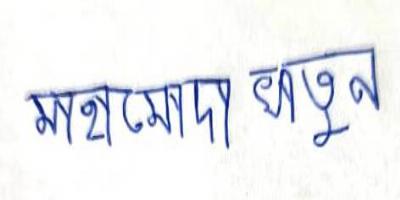 মাহামোদা খাতুন